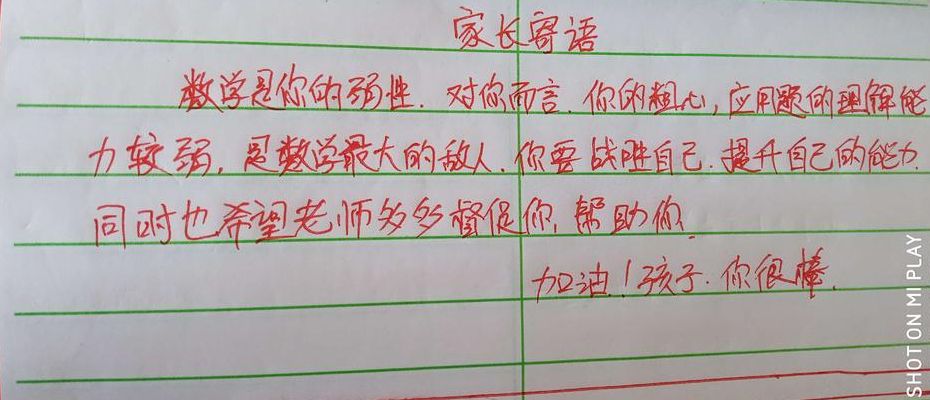 家长寄语
数学是你的弱性.对你而言.你的粗心,应用题的理解能
力较弱,是数学最大的敌人.你要战胜自己.提升自己的能力.
同时也希望老师多多督促你,帮助你.
加油!孩子.你很棒.
SHOT ON MI PLAY